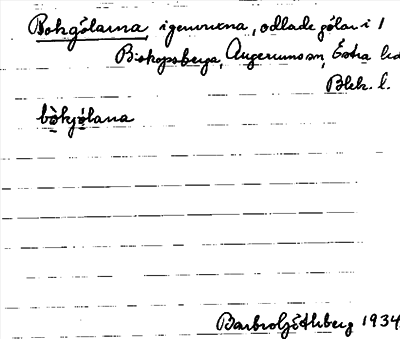 Bokgölarna igenvuxna, odlade gölar i
Biskopsberga, Augerums sn, Östra hd
Blek. l.
bòkjǿlana
Barbro Götlberg 1934